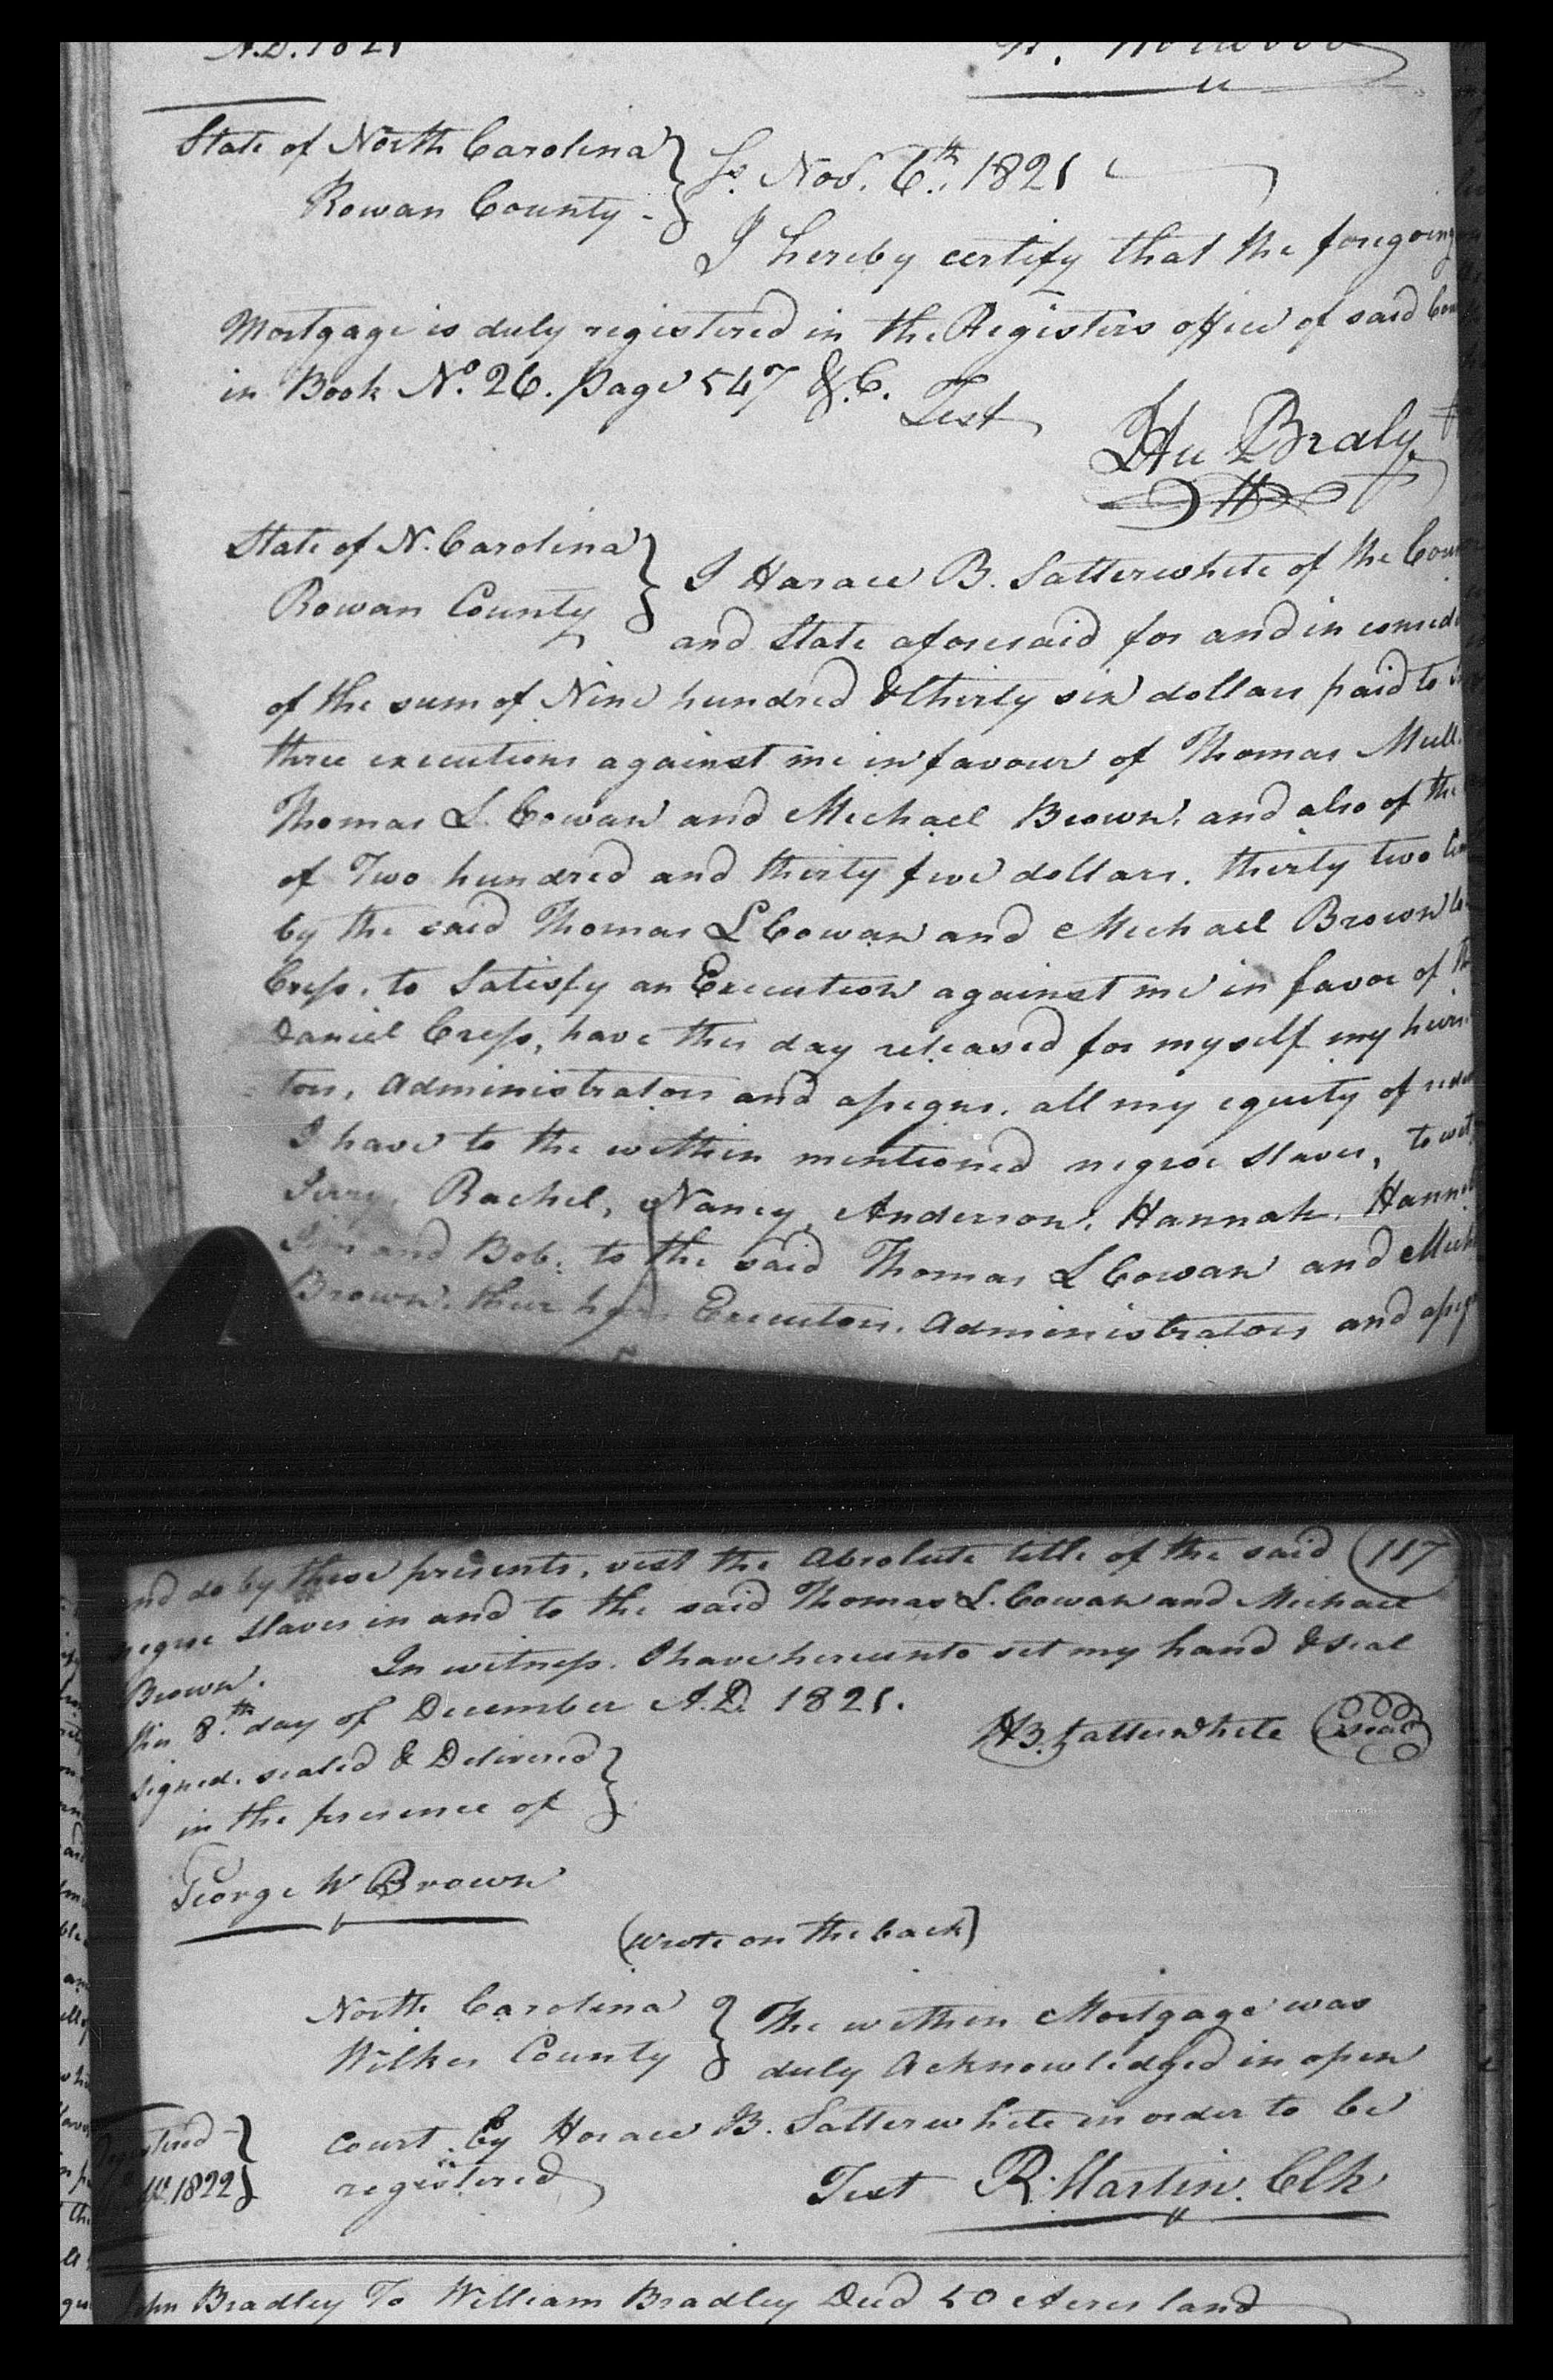 A.D. 1821
State of North Carolina
Rowan County
Ss. Nov. 6th. 1821
I hereby certify that the foregoing
Mortgage is duly registered in the Registers office of said
in Book No. 26. page 547 &.C. Test
Hu Braly
State of N. Carolina
Rowan County
I Horace B. Satterwhite of the
and State aforesaid for and in
of the sum of Nine hundred & thirty six dollars paid to
three executions against me in favour of Thomas
Thomas L. Cowan and Michael Brown, and also of the
of Two hundred and thirty five dollars. thirty two
by the said Thomas L Cowan and Michael Brown
Cress. to Satisfy an Execution against me in favor of
Daniel Cress, have this day released for myself my heirs
tors, Administrators and assigns. all my equity of
I have to the within mentioned negroe slaves, to wit
Jerry, Rachel, Nancy, Anderson, Hannah,
Jim and Bob. to the said Thomas L Cowan and
Brown. their heirs Executors. Administrators and
and do by these presents, vest the Absolute title of the said 117
negroe slaves in and to the said Thomas L. Cowan and Michael
Brown. In witness. I have hereunto set my hand & seal
this 8th. day of December A.D. 1821.
H B. Satterwhite (seal)
Signed, sealed & Delivered
in the presence of
George W Brown
(wrote on the back)
North Carolina
Wilkes County
The within Mortgage was
duly Acknowledged in open
court. by Horace B. Satterwhite in order to be
registered
Test R. Martin. Clk
1822
John Bradley To William Bradley Deed 50 Acres land